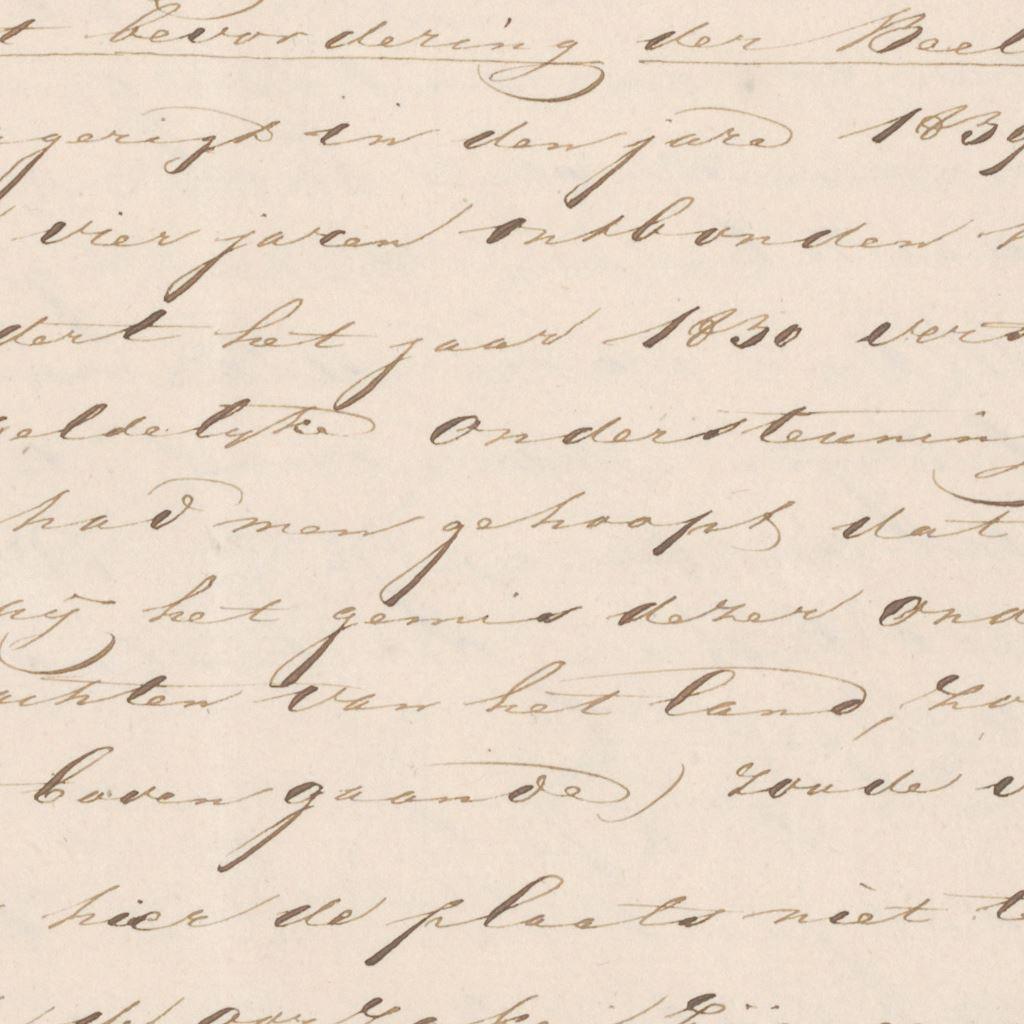 t bevordering der Beel
ngerigt in den jare 1839
vier jaren ontbonden
dert het jaar 1830 vert
geldelyke ondersteunin
had men gehoopt dat
pij het gemis dezer ond
achten van het land, zo
boven gaande) zoude
hier de plaats niet te
de oorzake